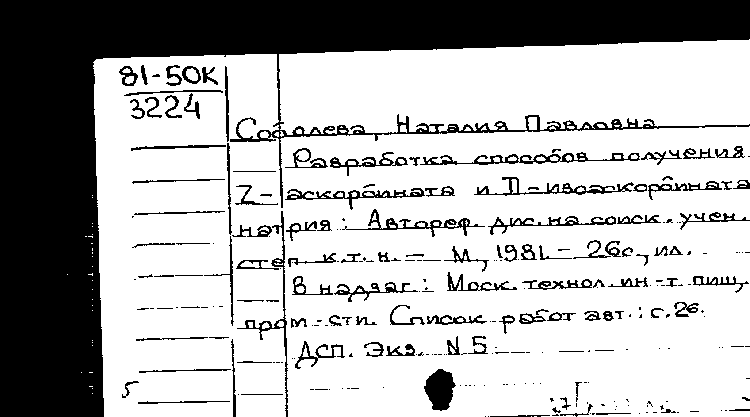 81-50К
3224
Соболева, Наталия Павловна
Разработка способов получения
Z-аскорбината и D-изоаскорбината
натрия: Автореф. дис. на соиск. учен.
степ. к.т.н. - М., 1981. - 26с., ил.
В надзаг.: Моск. технол. ин-т пищ.
пром-сти. Список работ авт.: с.26.
ДСП. Экз. N 5
5